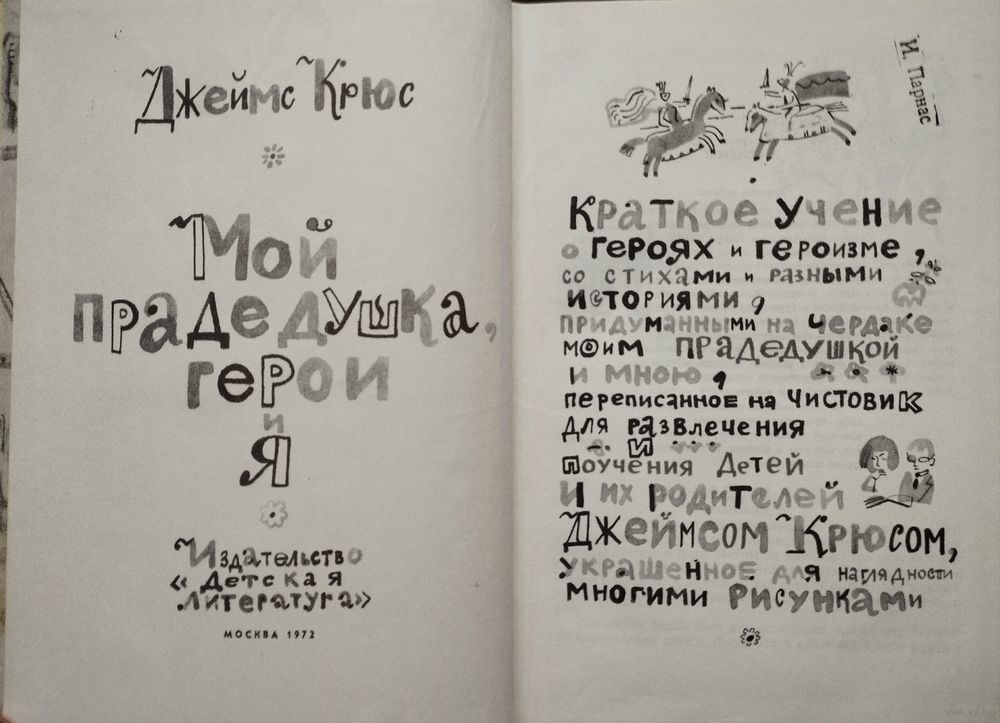 Джеймс Крюс
Мой
прадедушка,
герои
и
я
Издательство
«Детская
литература»
МОСКВА 1972
И. Парнас
Краткое учение
о героях и героизме,
со стихами и разными
историями,
придуманными на чердаке
моим прадедушкой
и мною,
переписанное на чистовик
для развлечения
и
поучения детей
и их родителей
Джеймсом Крюсом,
украшенное для наглядности
многими рисунками